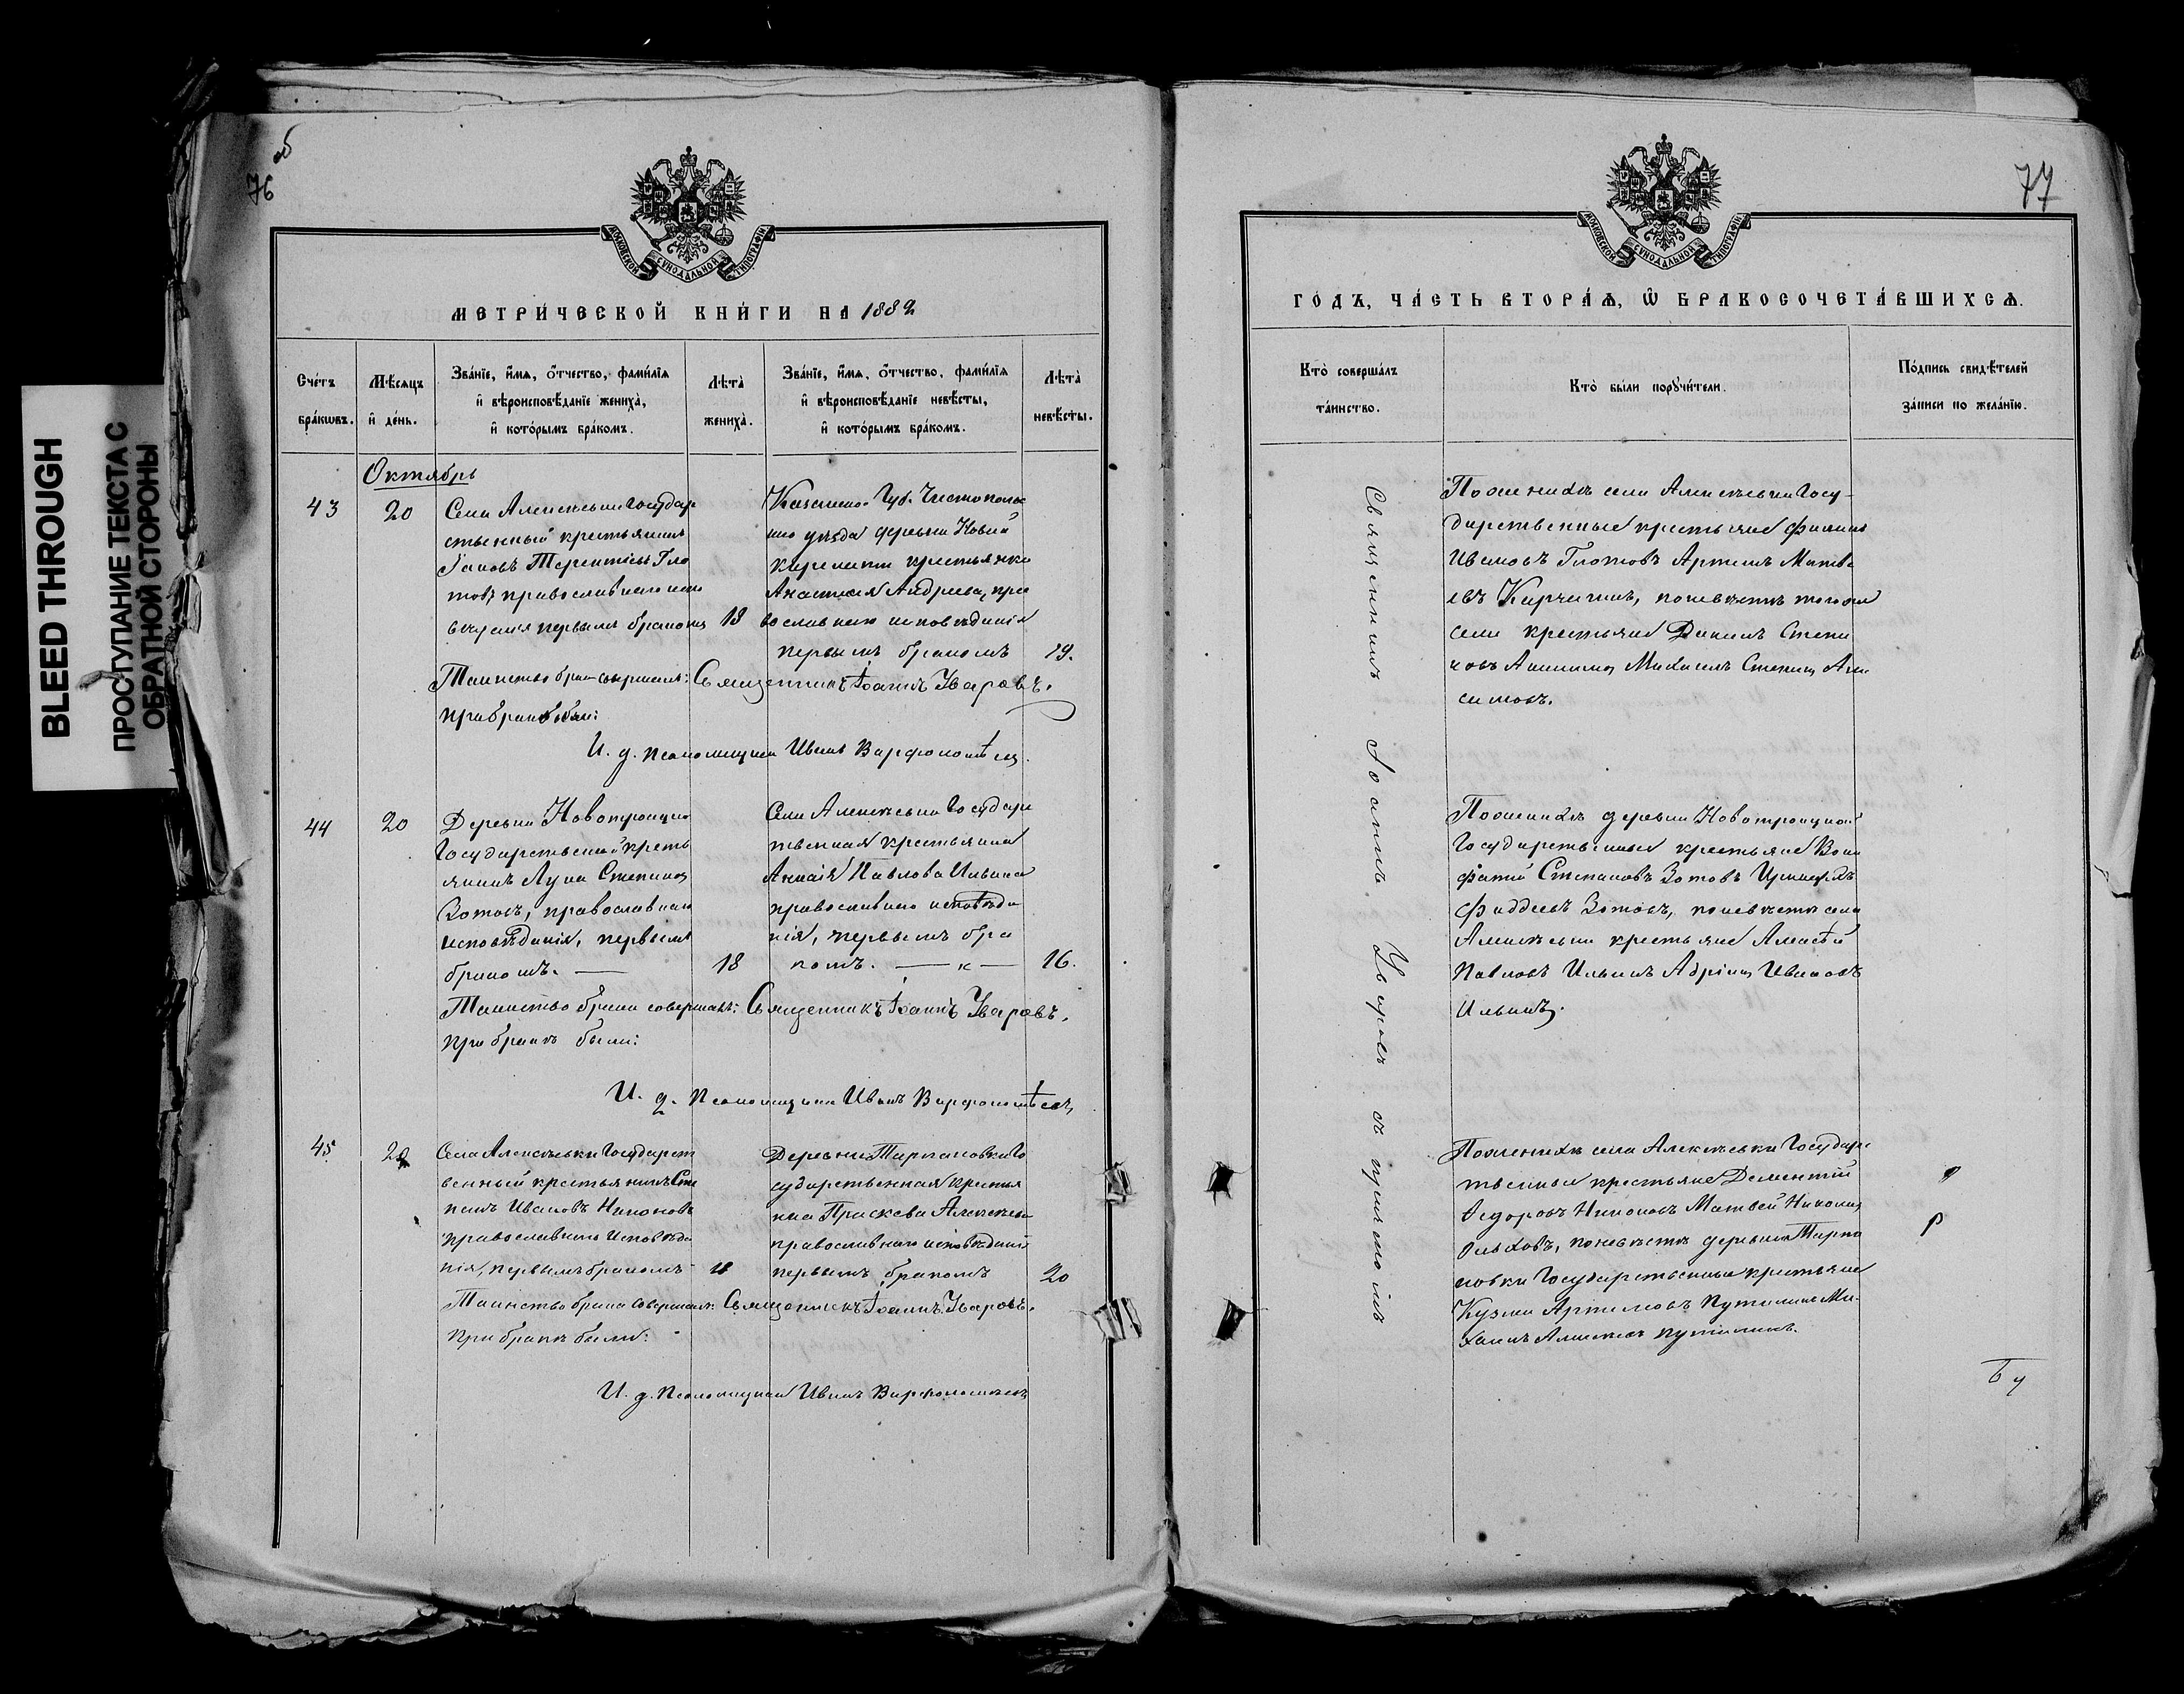 BLEED THROUGH
ПРОСТУПАНИЕ ТЕКСТА С
ОБРАТНОЙ СТОРОНЫ
об
76
МОСКОВСКОЙ СѴНОДАЛЬНОЙ ТИПОГРАФІИ
МЕТРИ́ЧЕСКОЙ КНИ́ГИ НА 1882
Сче́тъ бра́кωвъ.
Мѣ́сяцъ и҆ де́нь.
Зва́нїе, и҆́мя, ѻ҆́тчество, фами́лїя
и҆ вѣроисповѣ́данїе жениха̀,
и҆ кото́рымъ бра́комъ.
Лѣта̀ жениха̀.
Зва́нїе, и҆́мя, ѻ҆́тчество, фами́лїя
и҆ вѣроисповѣ́данїе невѣ́сты,
и҆ кото́рымъ бра́комъ.
Лѣта̀ невѣ́сты.
Октябрь
43
20
Села Алексѣевки Государ
ственный крестьянинъ
православнаго испо
первымъ бракомъ
18
Казанской Губ. Чистополь
уѣзда деревни Новой
крестьянка
Анастасія Андреева, пра
вославнаго исповѣданія
первымъ бракомъ
19.
Таинство брака совершалъ: Священникъ Іоаннъ Уваровъ.
При бракѣ были:
И. д. Псаломщика Иванъ Варфоломѣевъ
44
20
Деревни Новотроицкой
Государственный кресть
янинъ Лука Степановъ
Зотовъ, православнаго
исповѣданія, первымъ
бракомъ. —
18
Села Алексѣевки Государс
твенная крестьянка
Павлова Ильина
православнаго исповѣда
нія, первымъ бра
комъ. —
16.
Таинство брака совершалъ: Священникъ Іоаннъ Уваровъ.
При бракѣ были:
И. д. Псаломщика Иванъ Варфоломѣевъ
45
20
Села Алексѣевки Государст
венный крестьянинъ Сте
панъ Ивановъ Никоновъ
православнаго исповѣда
нія, первымъ бракомъ
18
Деревни Тарпановки Го
сударственная крестья
нка Праскева Алексѣева
православнаго исповѣданія
первымъ бракомъ
20
Таинство брака совершалъ: Священникъ Іоаннъ Уваровъ.
При бракѣ были:
И. д. Псаломщика Иванъ Варфоломѣевъ
77
МОСКОВСКОЙ СѴНОДАЛЬНОЙ ТИПОГРАФІИ
ГО́ДЪ, ЧА́СТЬ ВТОРА́Ѧ, Ѽ БРАКОСОЧЕТА́ВШИХСѦ.
Кто̀ соверша́лъ та́инство.
Кто̀ бы́ли порꙋчи́тели.
По́дпись свидѣ́телей за́писи по жела́нїю.
Священникъ Іоаннъ Уваровъ съ причтомъ
По женихѣ села Алексѣевки Госу-
дарственные крестьяне
Ивановъ Глотовъ Артемъ Матве
евъ по невѣстѣ того же
села крестьяне Данилъ Степа
новъ Михаилъ Степановъ Ани
симовъ.
По женихѣ деревни Новотроицкой
Государственные крестьяне Вони
фатій Степановъ Зотовъ
Фаддеевъ Зотовъ, по невѣстѣ села
Алексѣевки крестьяне Алексѣй
Павловъ Ильинъ Адріанъ Ивановъ
Ильинъ.
По женихѣ села Алексѣевки Государс
твенные крестьяне Дементій
Ѳедоровъ Никоновъ Матвей
по невѣстѣ деревни Тарпа
новки Государственные крестьяне
Кузма Артемовъ Путилинъ Ми-
хаилъ Алексѣевъ Путилинъ.